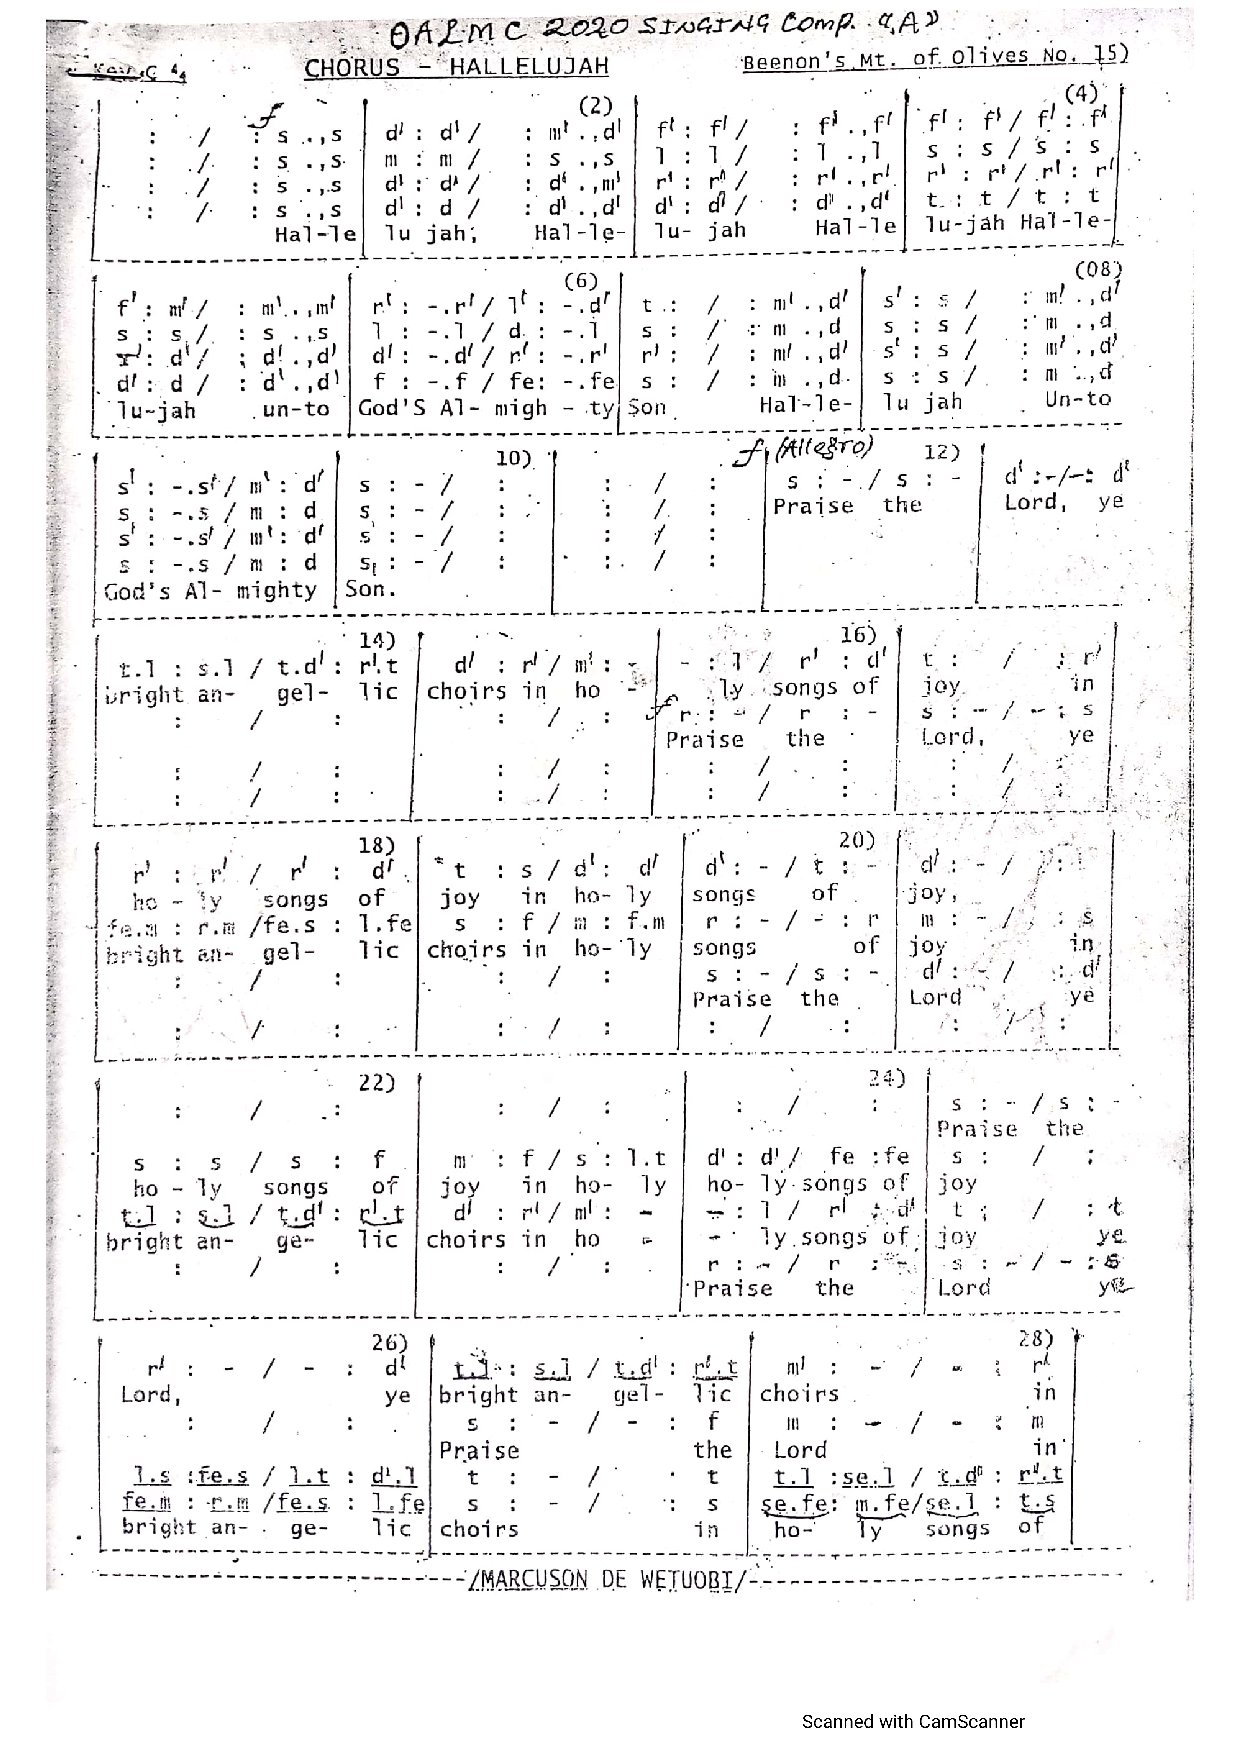 OALMC 2020 SINGING Comp. "A"
CHORUS - HALLELUJAH Beenon's Mt. of Olives No. 15)
f (2) (4)
: / : s .,s | d' : d' / : m' .,d' | f' : f' / : f' .,f' | f' : f' / f' : f'
: / : s .,s | m : m / : s .,s | l : l / : l .,l | s : s / s : s
: / : s .,s | d' : d' / : d' .,m' | r' : r' / : r' .,r' | r' : r' / r' : r'
: / : s .,s | d' : d / : d' .,d' | d' : d' / : d' .,d' | t : t / t : t
Hal-le | lu jah; Hal-le- | lu- jah Hal-le | lu-jah Hal-le-
(6) (08)
f' : m' / : m' .,m' | r' : -.r' / l' : -.d' | t : / : m' .,d' | s' : s / : m' .,d'
s : s / : s .,s | l : -.l / d : -.l | s : / : m .,d | s : s / : m .,d
r' : d' / : d' .,d' | d' : -.d' / r' : -.r' | r' : / : m' .,d' | s' : s / : m' .,d'
d' : d / : d' .,d' | f : -.f / fe: -.fe | s : / : m .,d | s : s / : m .,d
lu-jah un-to | God'S Al- migh - ty | Son Hal-le- | lu jah Un-to
10) f (Allegro) 12)
s' : -.s' / m' : d' | s : - / : | : / : | s : - / s : - | d' :-/-: d'
Praise the | Lord, ye
s : -.s / m : d | s : - / : | : / :
s' : -.s' / m' : d' | s : - / : | : / :
s : -.s / m : d | s₁ : - / : | : / :
God's Al- mighty | Son.
14) 16)
t.l : s.l / t.d' : r'.t | d' : r' / m' : - | - : l / r' : d' | t : / : r'
bright an- gel- lic | choirs in ho - | ly songs of | joy in
: / : | : / : | f r : - / r : - | s : - / - : s
Praise the | Lord, ye
: / : | : / : | : / : | : / :
: / : | : / : | : / : | : / :
18) 20)
r' : r' / r' : d' | t : s / d' : d' | d' : - / t : - | d' : - / :
ho - ly songs of | joy in ho- ly | songs of | joy,
fe.m : r.m /fe.s : l.fe | s : f / m : f.m | r : - / - : r | m : - / : s
bright an- gel- lic | choirs in ho- ly | songs of | joy in
: / : | : / : | s : - / s : - | d' : - / : d'
Praise the | Lord ye
: / : | : / : | : / : | : / :
22) 24)
: / : | : / : | : / : | s : - / s : -
Praise the
s : s / s : f | m : f / s : l.t | d' : d' / fe :fe | s : / :
ho - ly songs of | joy in ho- ly | ho- ly songs of | joy
t.l : s.l / t.d' : r'.t | d' : r' / m' : - | - : l / r' : d' | t : / : t
bright an- ge- lic | choirs in ho - | - ly songs of | joy ye
: / : | : / : | r : - / r : - | s : - / - : s
Praise the | Lord ye
26) 28)
r' : - / - : d' | t.l : s.l / t.d' : r'.t | m' : - / - : r'
Lord, ye | bright an- gel- lic | choirs in
: / : | s : - / - : f | m : - / - : m
Praise the | Lord in
l.s :fe.s / l.t : d'.l | t : - / : t | t.l :se.l / t.d' : r'.t
fe.m : r.m /fe.s : l.fe | s : - / : s | se.fe: m.fe/se.l : t.s
bright an- ge- lic | choirs in | ho- ly songs of
/MARCUSON DE WETUOBI/
Scanned with CamScanner